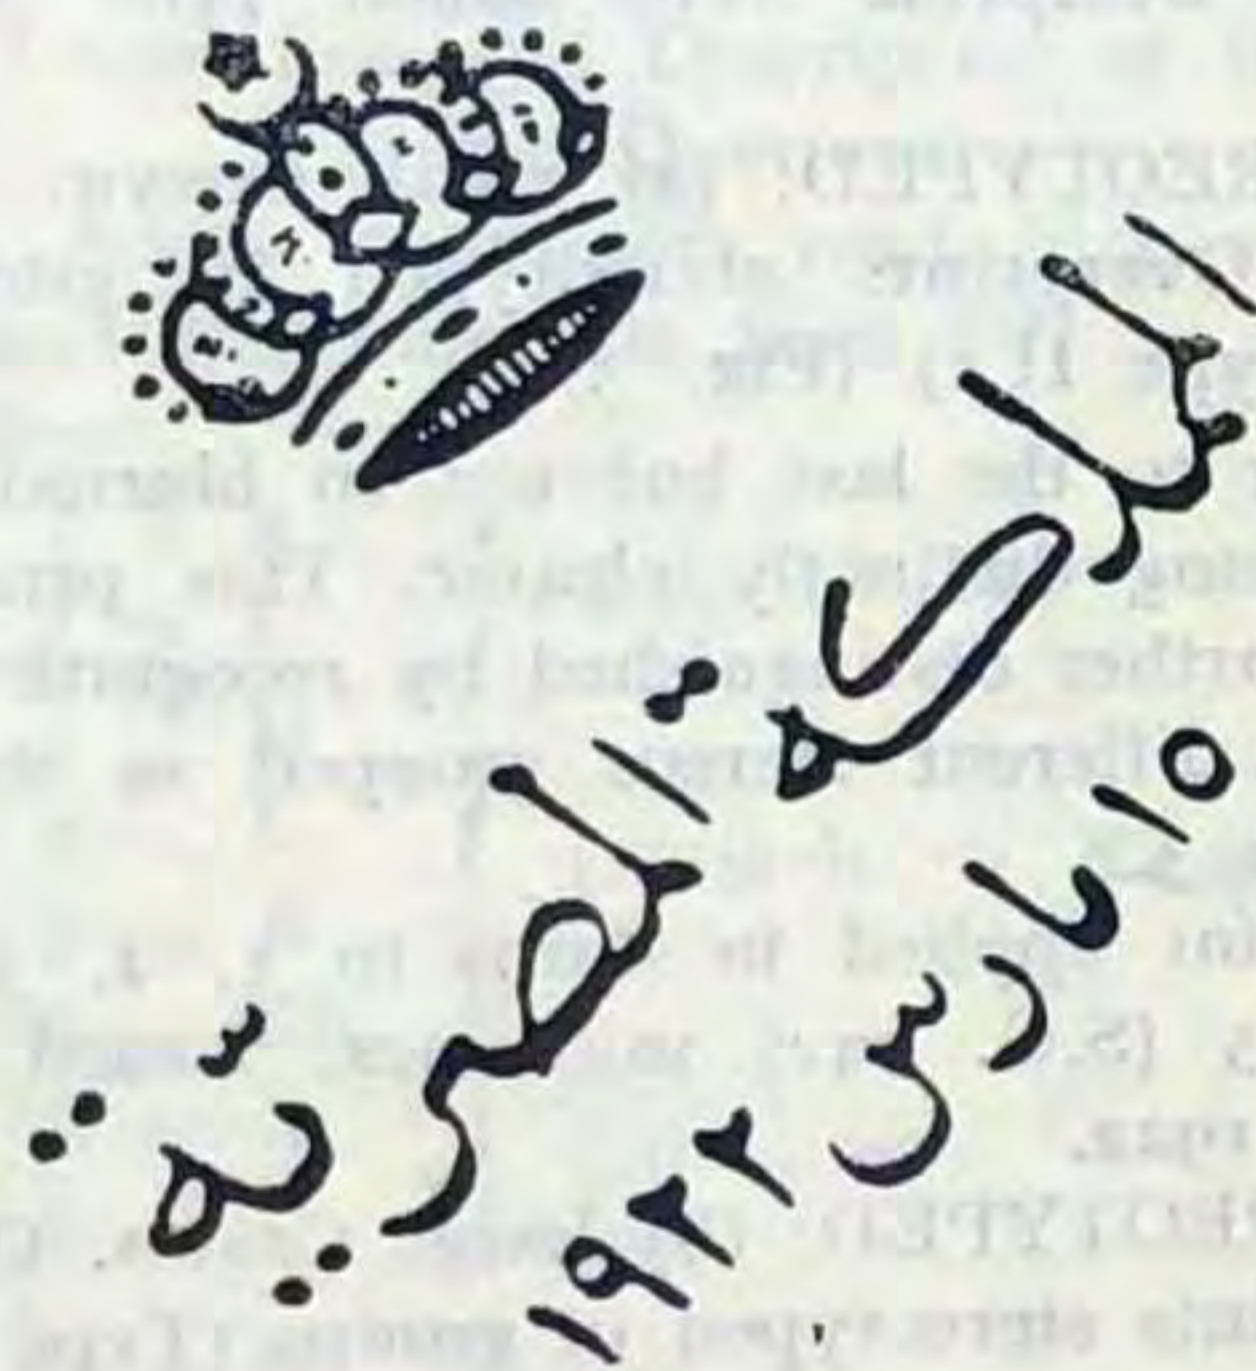 المملكة المصريّة
١٥ مارس ١٩٢٢